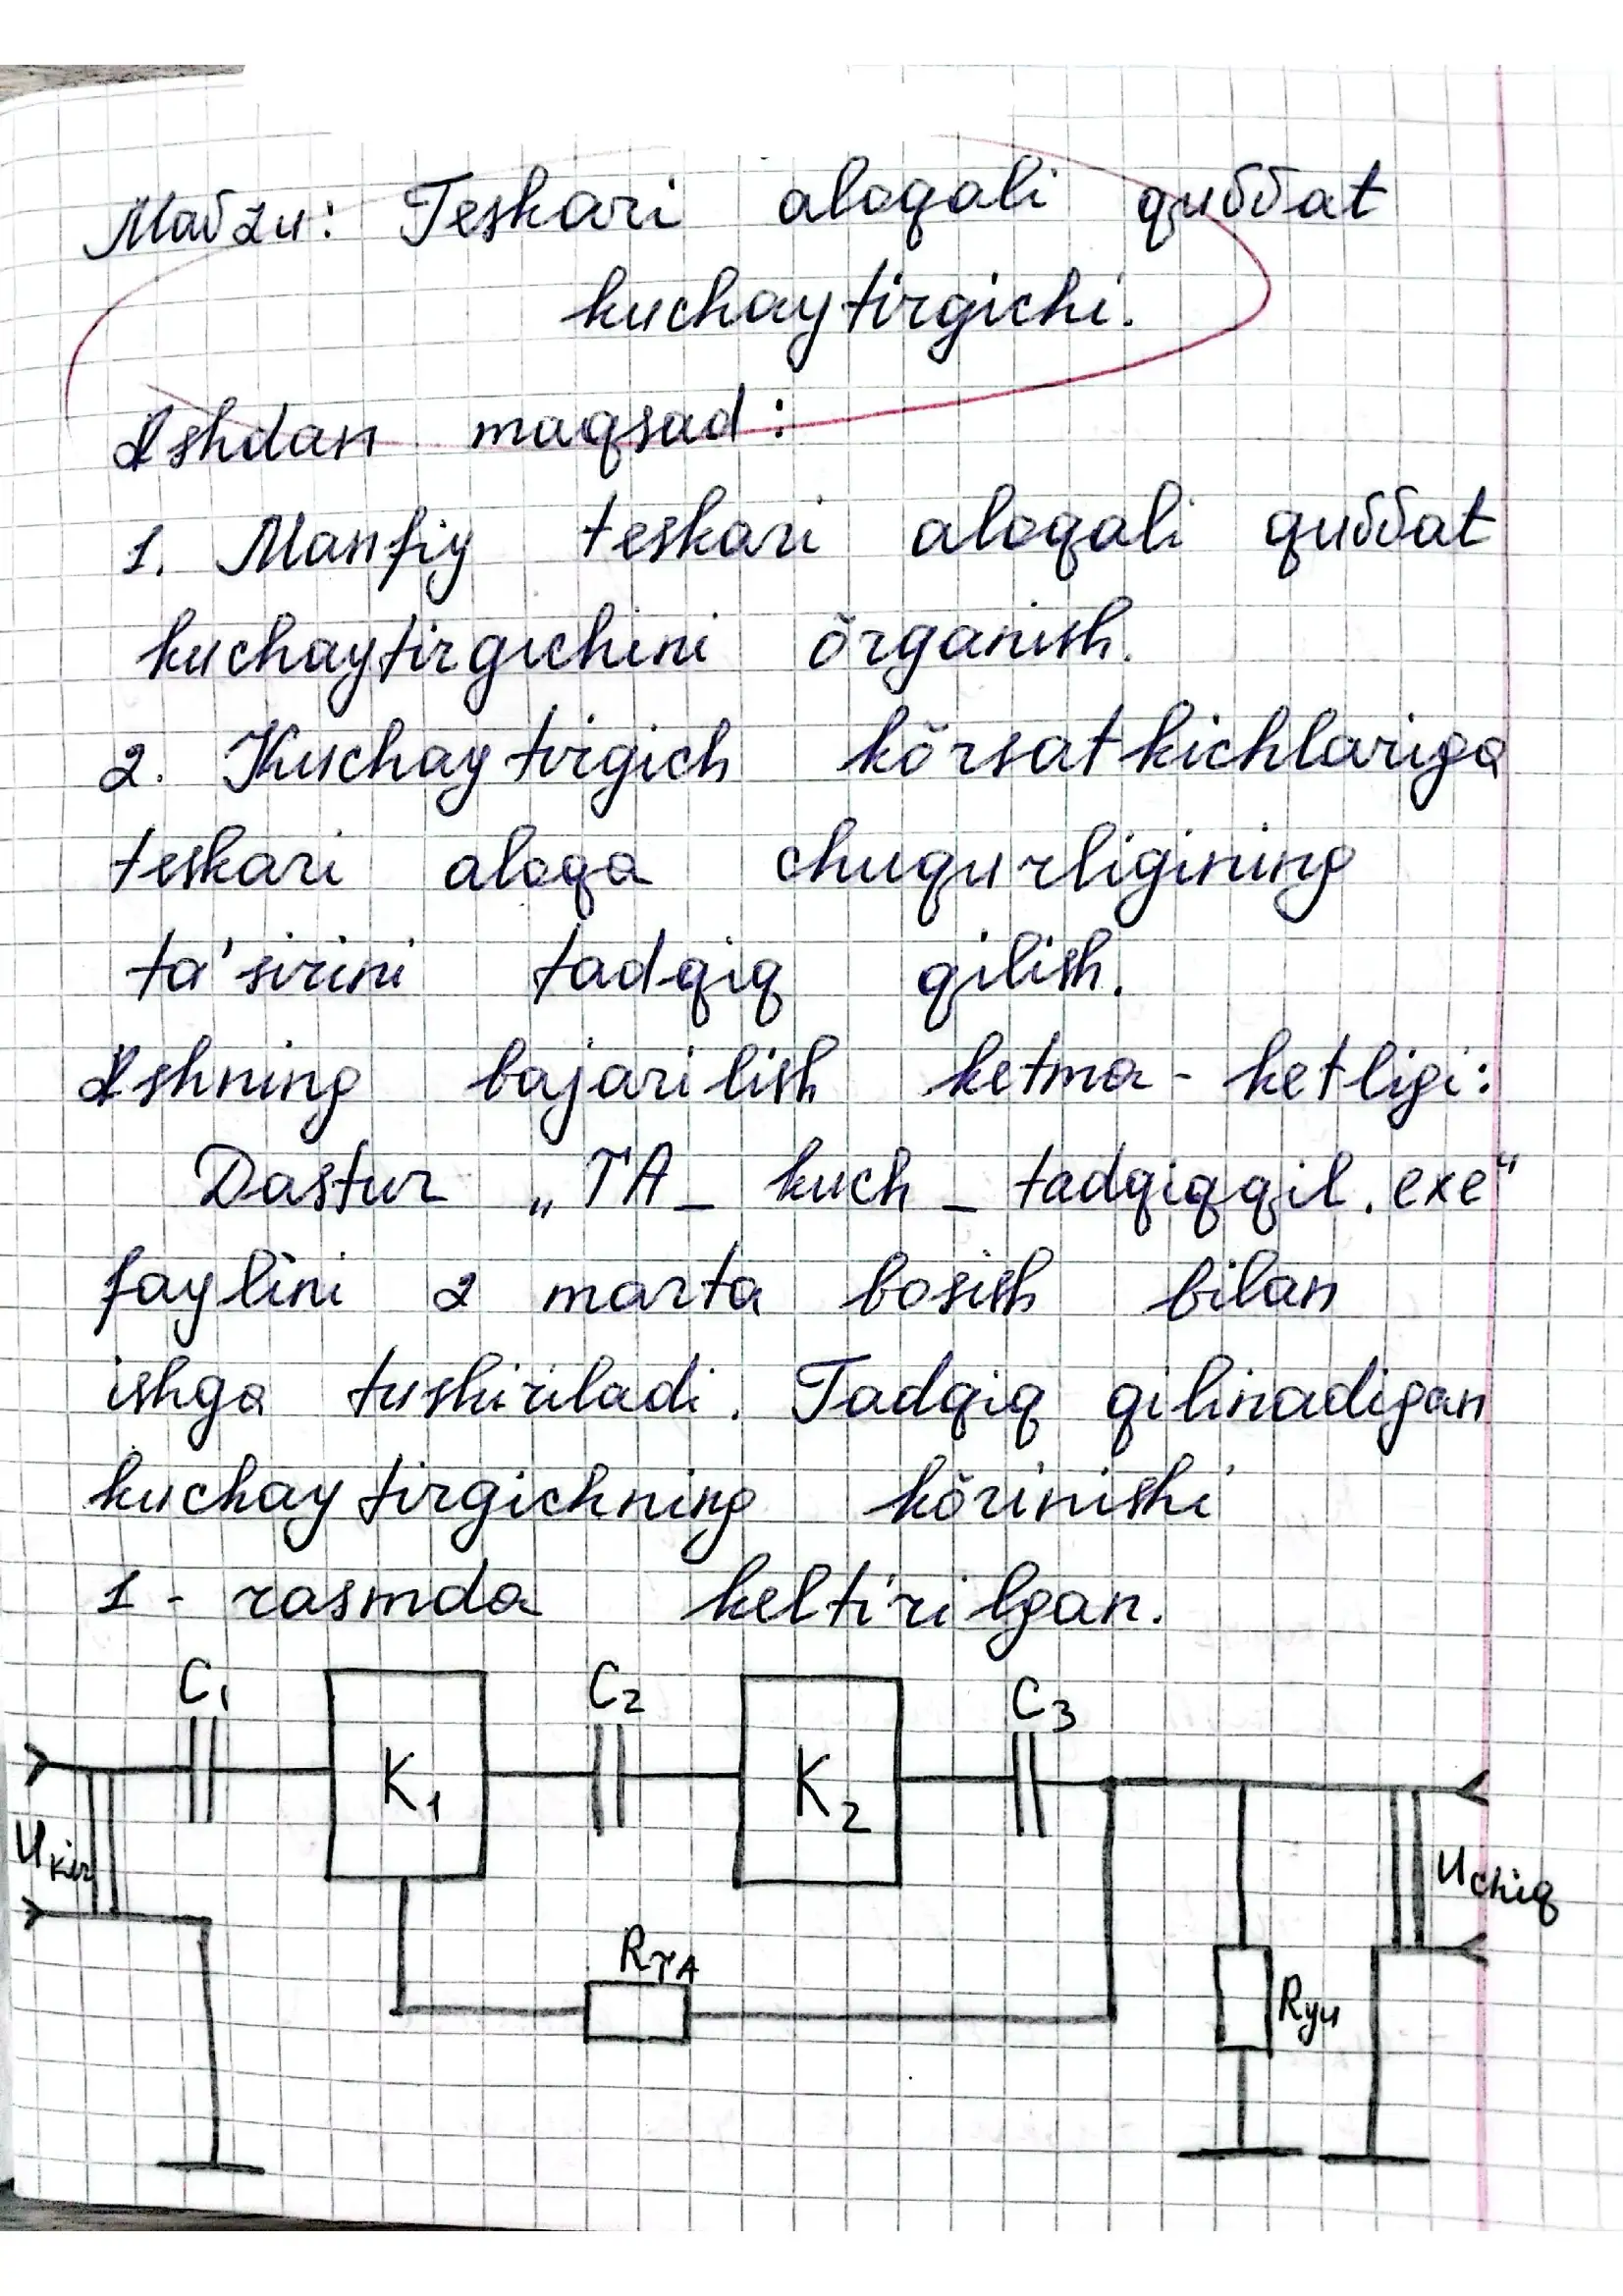 Mavzu: Teskari aloqali quvvat
kuchaytirgichi.
Ishdan maqsad:
1. Manfiy teskari aloqali quvvat
kuchaytirgichini õrganish.
2. Kuchaytirgich kõrsatkichlariga
teskari aloqa chuqurligining
ta'sirini tadqiq qilish.
Ishning bajarilish ketma-ketligi:
Dastur „TA_kuch_tadqiqqil.exe“
faylini 2 marta bosish bilan
ishga tushiriladi. Tadqiq qilinadigan
kuchaytirgichning kõrinishi
1-rasmda keltirilgan.
C₁ C₂ C₃
K₁ K₂
Uкir Uchiq
RTA Ryu